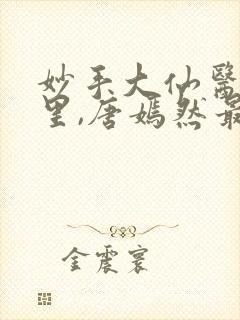 妙手大仙醫
里,唐嫣然最
金震寰